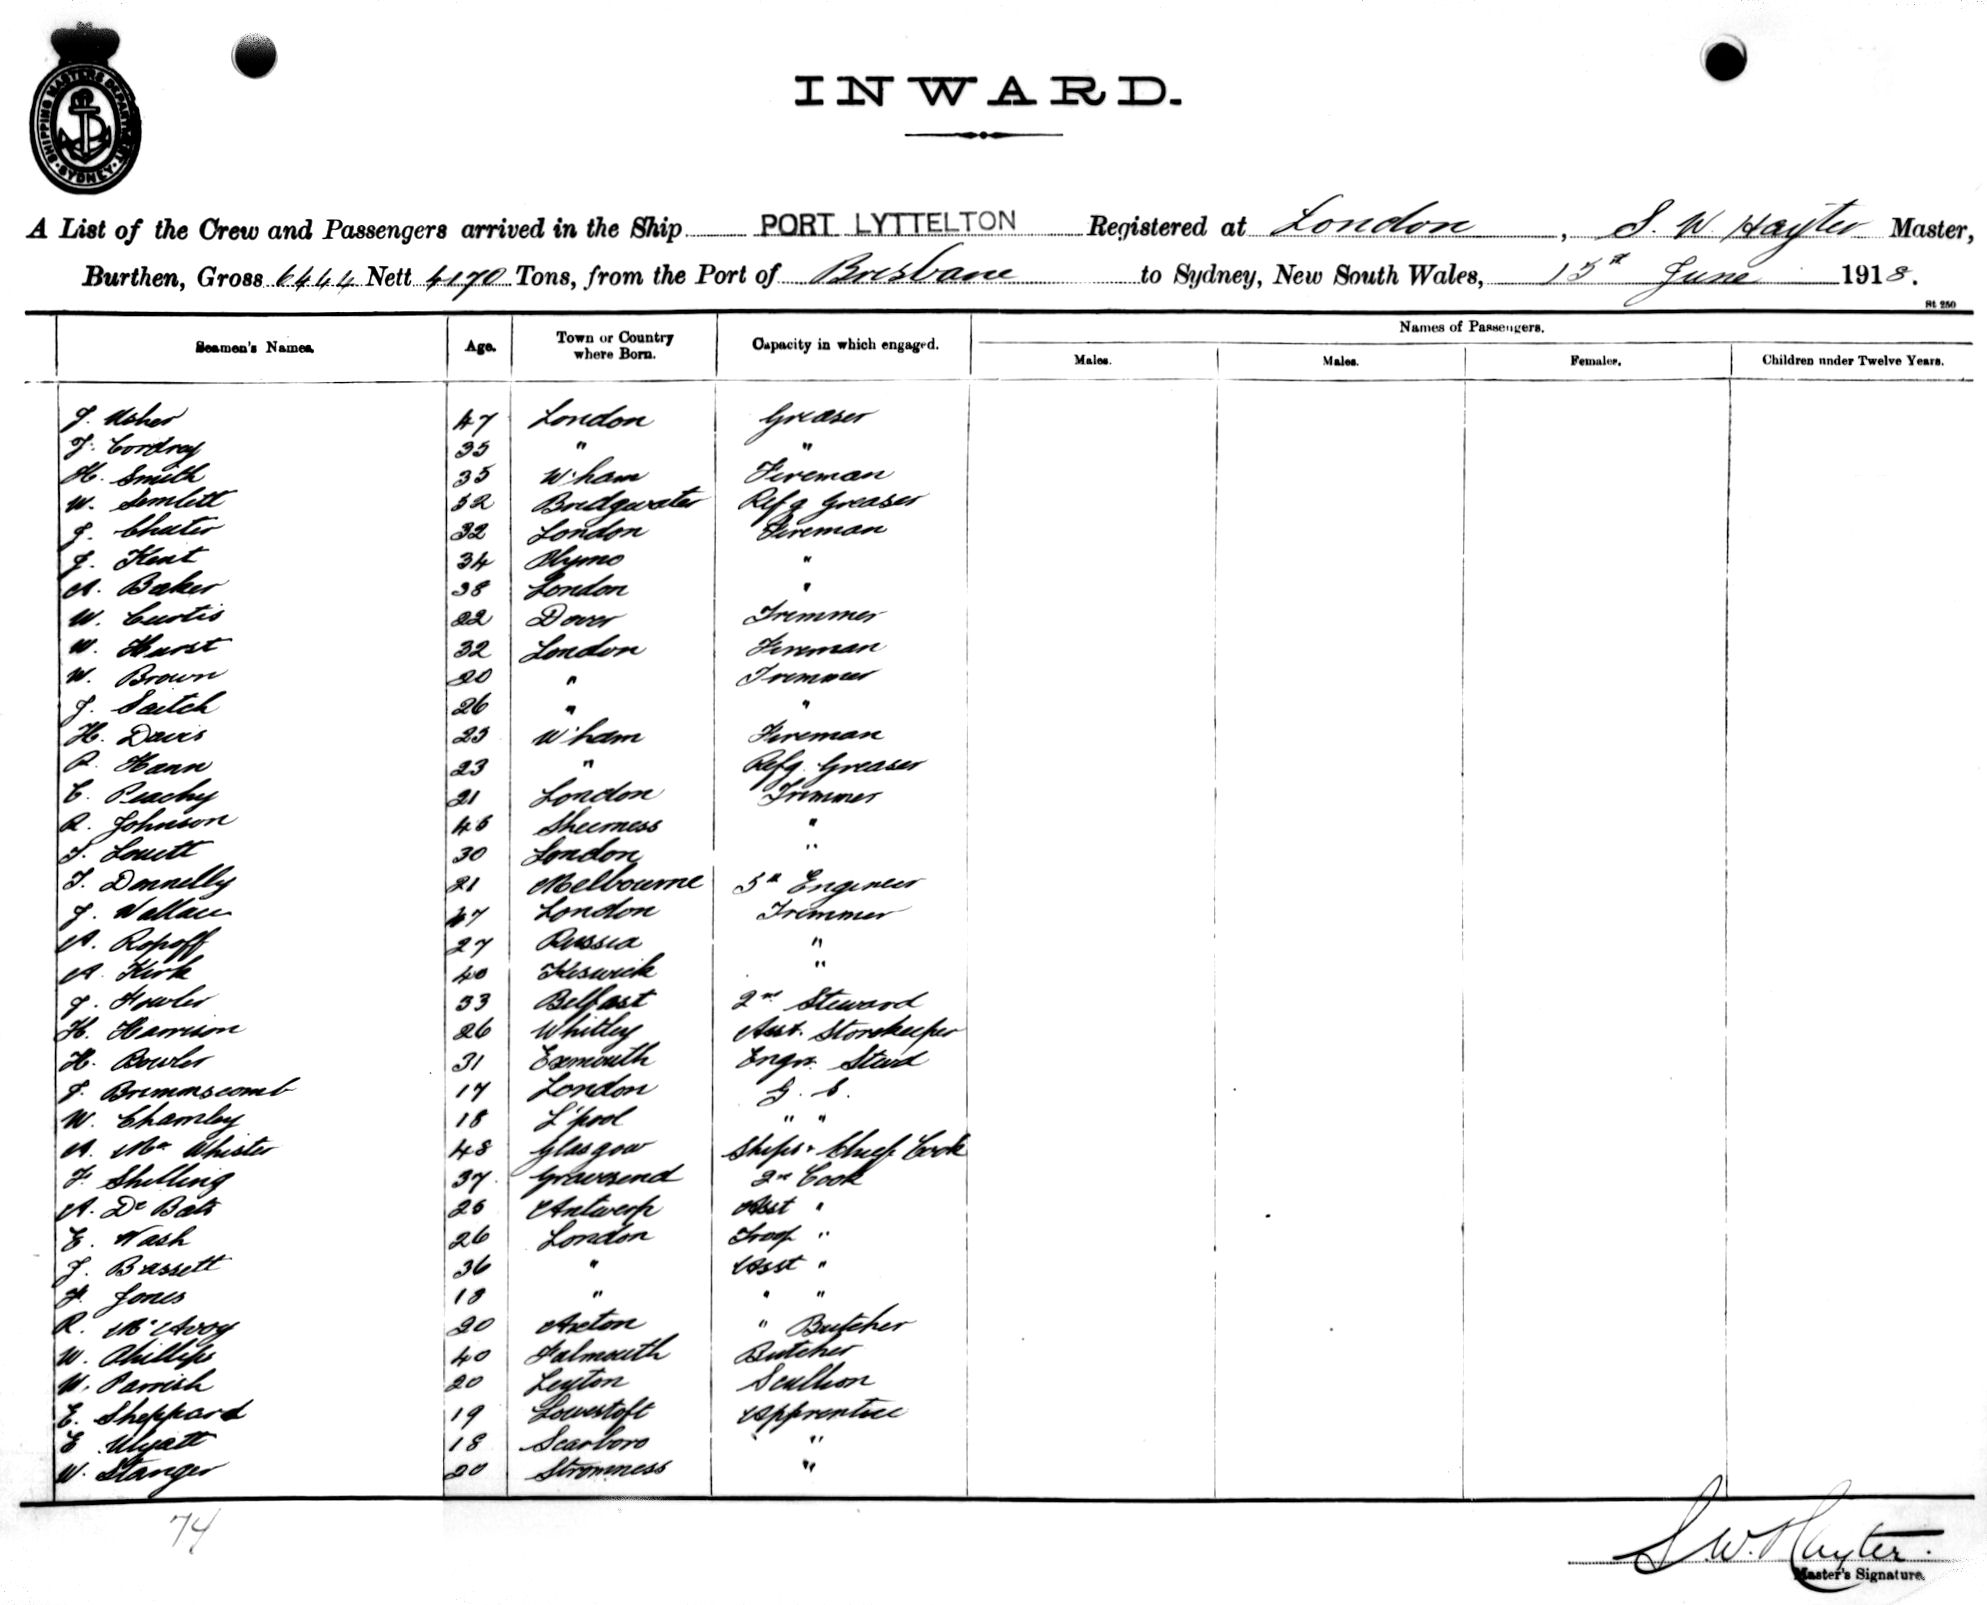 SHIPPING MASTERS DEPARTMENT
SYDNEY
INWARD.
A List of the Crew and Passengers arrived in the Ship PORT LYTTELTON Registered at London, S. W. Hayter Master,
Burthen, Gross 6444 Nett 4170 Tons, from the Port of Brisbane to Sydney, New South Wales, 15th June 1918.
St. 250
Seamen's Names. Age. Town or Country where Born. Capacity in which engaged. Names of Passengers.
Males. Males. Females. Children under Twelve Years.
J. Usher 47 London Greaser
J. Cordray 35 " "
H. Smith 35 W'ham Fireman
W. Semlett 52 Bridgwater Refg Greaser
J. Chater 32 London Fireman
J. Kent 34 Plymo "
A. Baker 38 London "
W. Curtis 22 Dover Trimmer
W. Hurst 32 London Fireman
W. Brown 20 " Trimmer
J. Saitch 26 " "
H. Davis 23 W'ham Fireman
R. Hann 23 " Refg. Greaser
C. Peachy 21 London Trimmer
R. Johnson 46 Sheerness "
T. Lovett 30 London "
T. Donnelly 21 Melbourne 5th Engineer
J. Wallace 47 London Trimmer
A. Ropoff 27 Russia "
A. Kirk 40 Keswick "
J. Fowler 33 Belfast 2nd Steward
H. Harrison 26 Whitley Asst. Storekeeper
H. Bowler 31 Exmouth Engrs. Stwd
J. Brimmscomb 17 London G. S.
W. Chamley 18 L'pool " "
A. Mc Whister 48 Glasgow Ships Chief Cook
F. Shilling 37 Gravesend 2nd Cook
A. De Bats 25 Antwerp Asst "
E. Nash 26 London Troop "
J. Bassett 36 " Asst "
F. Jones 18 " " "
R. McAvoy 20 Acton " Butcher
W. Phillips 40 Falmouth Butcher
W. Parrish 20 Leyton Scullion
E. Sheppard 19 Lowestoft Apprentice
E. Wyatt 18 Scarboro "
W. Stanger 20 Stromness "
74
S. W. Hayter.
Master's Signature.